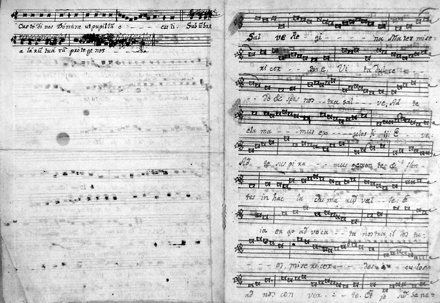 Custodi nos Domine ut pupillā o - - - culi. Sub ūbra
a larū tua rū protege nos - - -
Sal ve Re gi - - na Ma ter mise
ri cor - di e. Vi ta Dulce -
- - do & spes nos - tra sal - ve. Ad te
cla ma - mus exu - - les fi lii E ve.
Ad te sus pi ra - - mus gemen tes & flen
tes in hac la cri ma rū val - le. E
ia er go ad voca - ta nostra il los tu -
- os mise ri cor - - des o cu los
ad nos con ver - te. Et